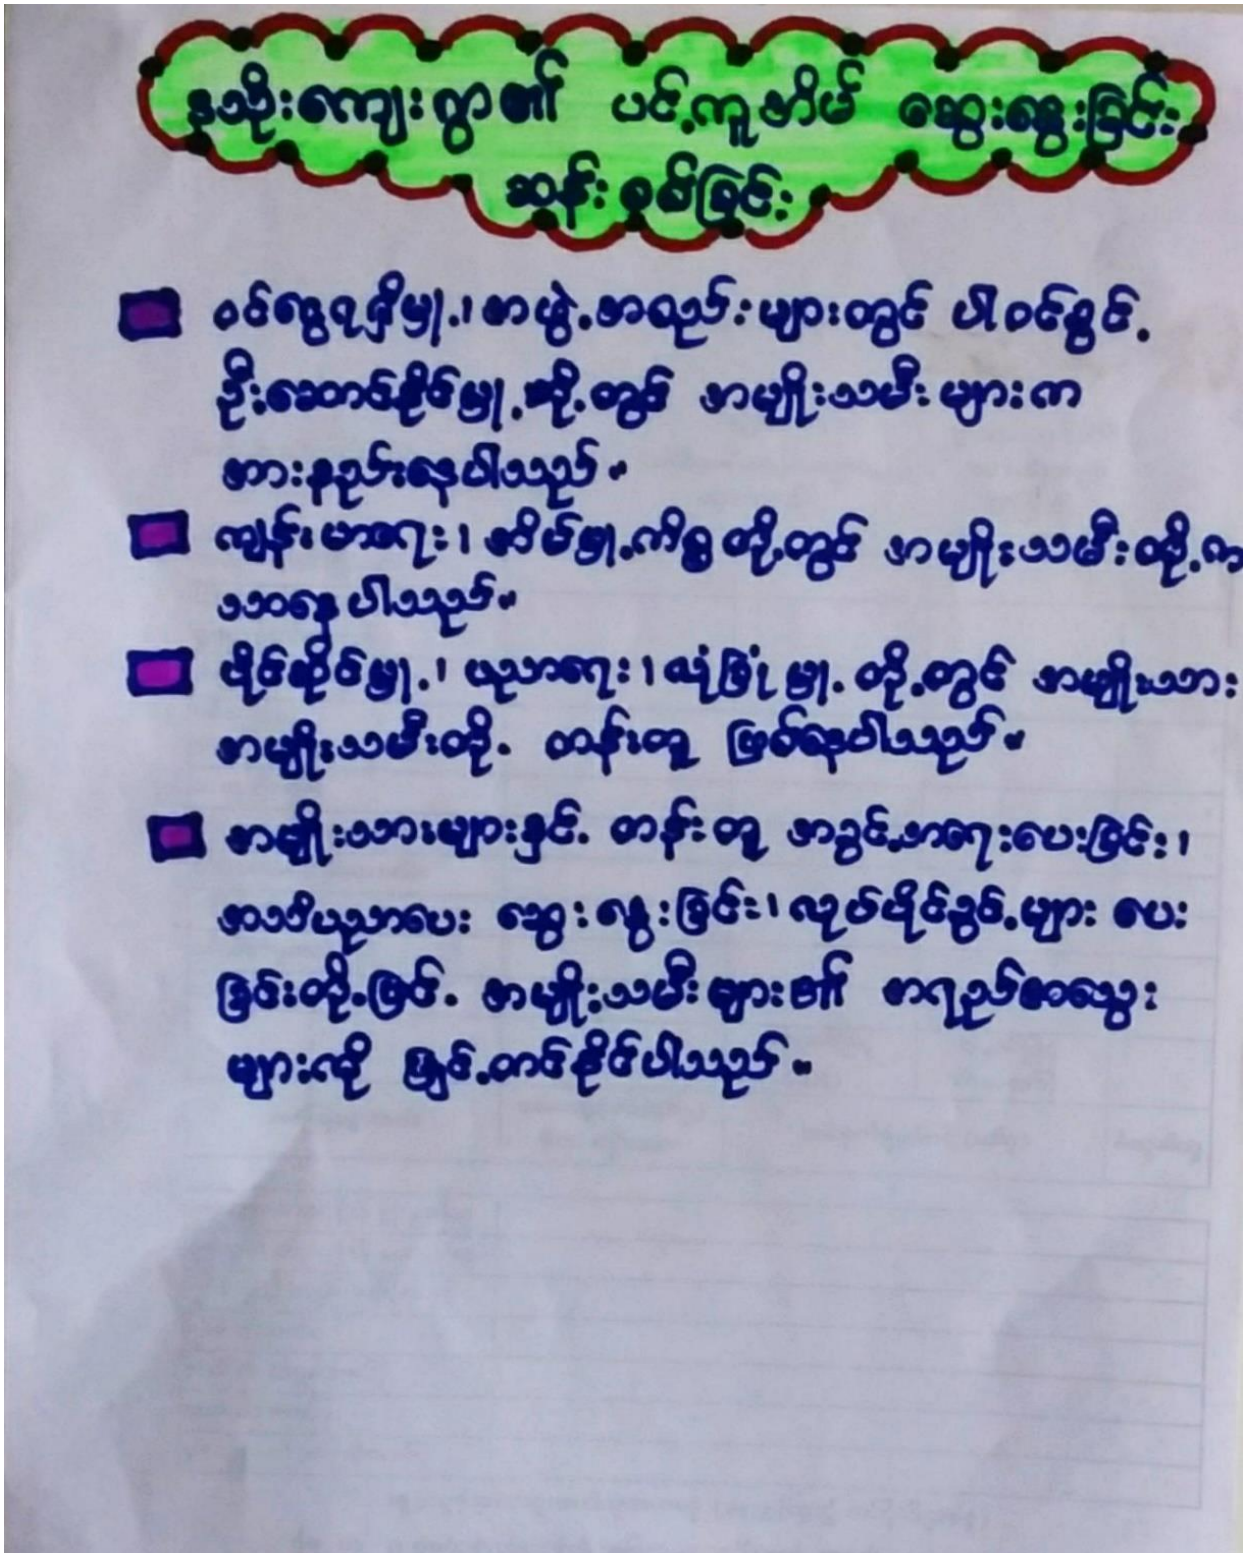 နသိုးကျေးရွာ၏ ပင့်ကူအိမ် ဆွေးနွေးခြင်း
ဆန်းစစ်ခြင်း
ဝင်ငွေရရှိမှု့၊ အဖွဲ့အစည်းများတွင် ပါဝင်ခွင့်
ဦးဆောင်နိုင်မှု့တို့တွင် အမျိုးသမီးများက
အားနည်းနေပါသည်။
ကျန်းမာရေး၊ အိမ်မှု့ကိစ္စတို့တွင် အမျိုးသမီးတို့က
သာနေပါသည်။
ပိုင်ဆိုင်မှု့၊ ပညာရေး၊ လုံခြုံမှု့တို့တွင် အမျိုးသား
အမျိုးသမီးတို့ တန်းတူ ဖြစ်နေပါသည်။
အမျိုးသားများနှင့် တန်းတူ အခွင့်အရေးပေးခြင်း၊
အသိပညာပေး ဆွေးနွေးခြင်း၊ လုပ်ပိုင်ခွင့်များ ပေး
ခြင်းတို့ဖြင့် အမျိုးသမီးများ၏ အရည်အသွေး
များကို မြှင့်တင်နိုင်ပါသည်။